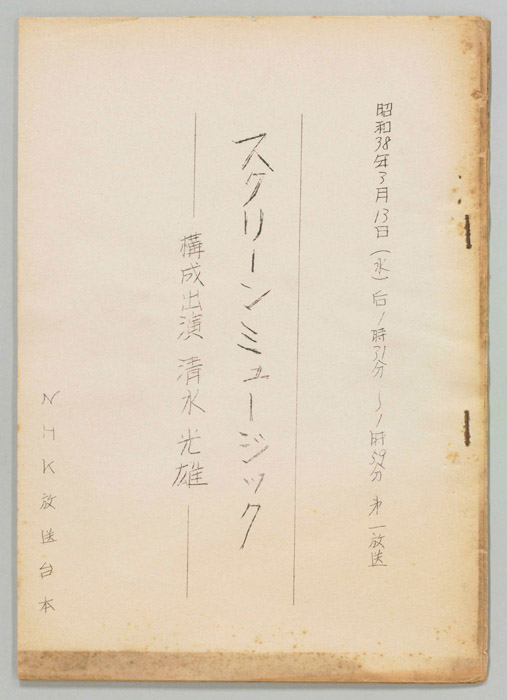 昭和38年3月13日(水)后1時31分〜1時59分 第一放送
スクリーンミュージック
構成出演 清水光雄
NHK放送台本